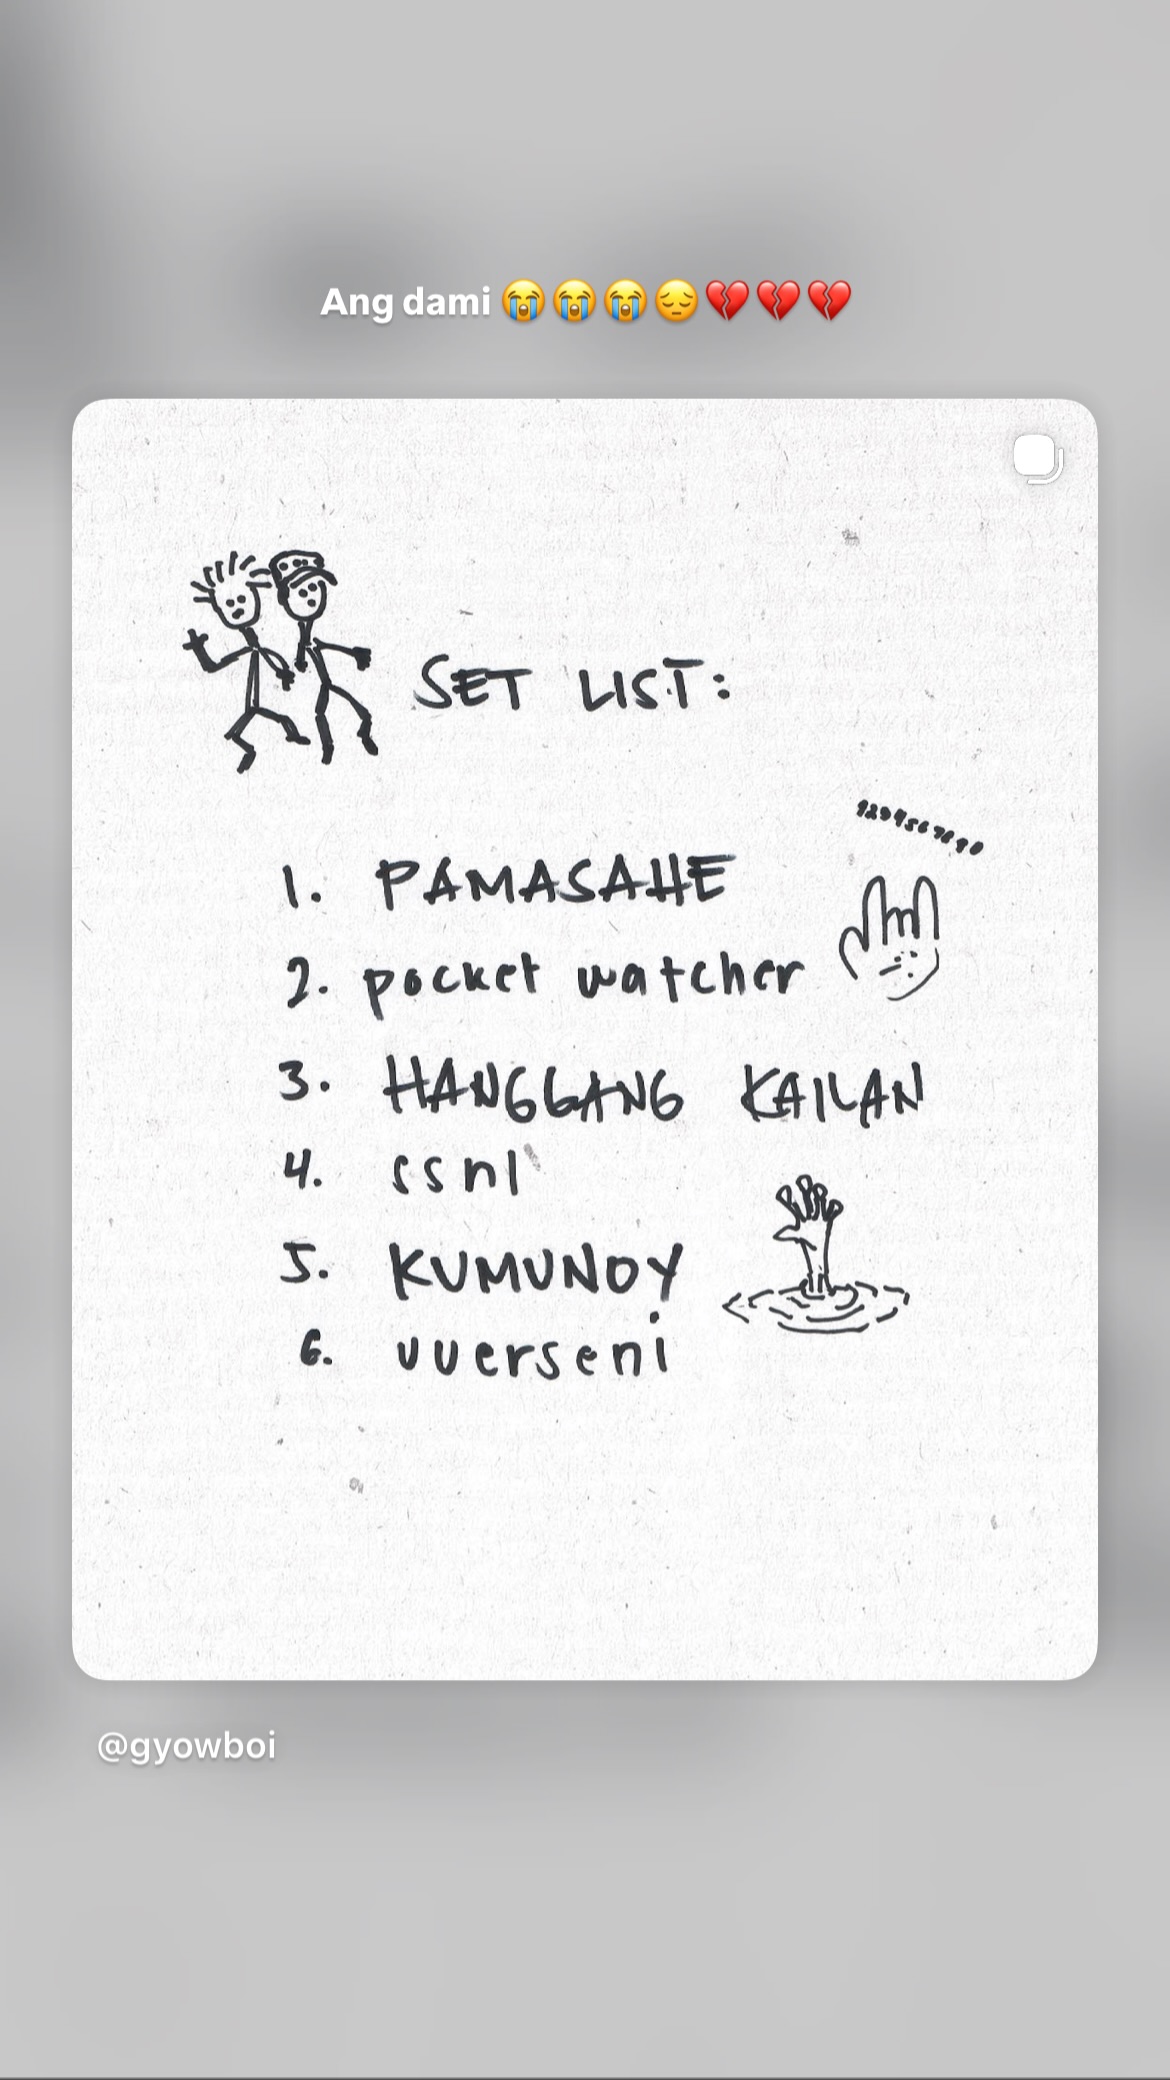 Ang dami 😭😭😭😔💔💔💔
SET LIST:
1234567890
1. PAMASAHE
2. pocket watcher
3. HANGGANG KAILAN
4. ssnl
5. KUMUNOY
6. vverseni
@gyowboi